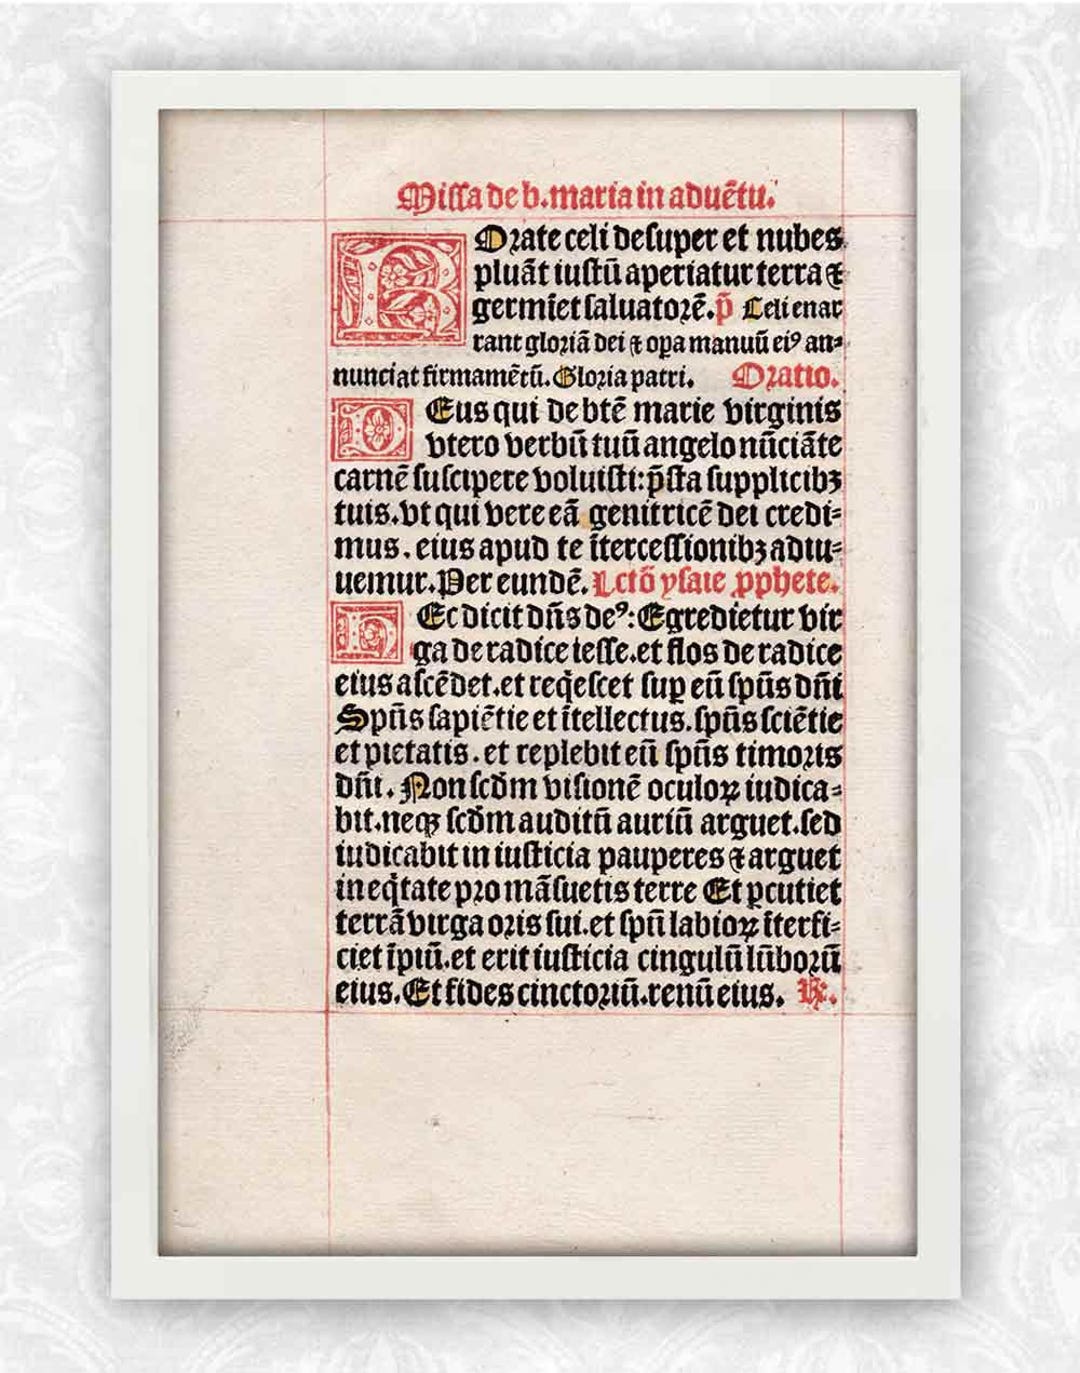 Missa de b. maria in aduētu.
ROrate celi desuper et nubes
pluāt iustū aperiatur terra ⁊
germīet saluatorē. p̄ Celi enar
rant gloriā dei ⁊ oꝑa manuū eiꝰ an⸗
nunciat firmamētū. Gloria patri. Oratio.
DEus qui de btē marie virginis
vtero verbū tuū angelo nūciāte
carnē suscipere voluisti: p̄sta supplicibꝫ
tuis. vt qui vere eā genitricē dei credi⸗
mus. eius apud te ītercessionibꝫ adiu⸗
uemur. Per eundē. Lctō ysaie ꝓphete.
HEc dicit dn̄s deꝰ: Egredietur vir
ga de radice iesse. et flos de radice
eius ascēdet. et reqͥescet suꝑ eū spūs dn̄i
Spūs sapiētie et ītellectus. spūs sciētie
et pietatis. et replebit eū spūs timoris
dn̄i. Non scd̄m visionē oculoꝝ iudica⸗
bit. neqꝫ scd̄m auditū auriū arguet. sed
iudicabit in iusticia pauperes ⁊ arguet
in eqͥtate pro māsuetis terre Et ꝑcutiet
terrā virga oris sui. et spū labioꝝ īterfi⸗
ciet īpiū. et erit iusticia cingulū lūborū
eius. Et fides cinctoriū. renū eius. ℟.